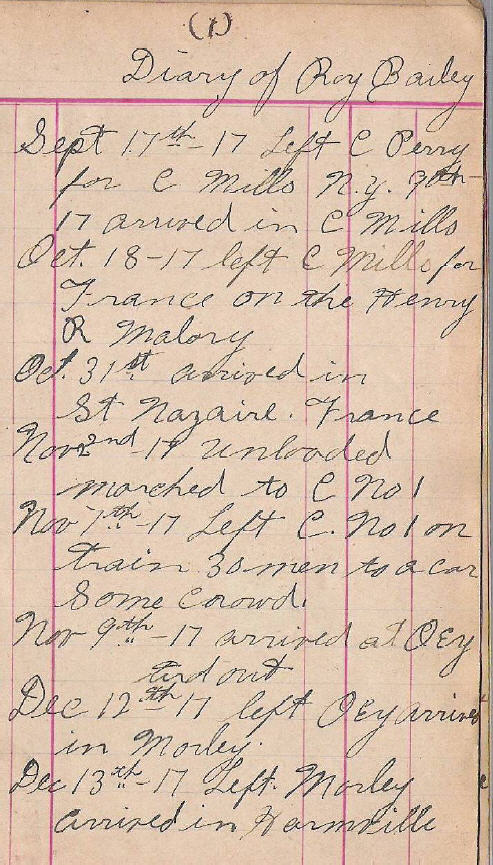 (1)
Diary of Roy Bailey
Sept 17th-17 Left C Perry
for C Mills N.Y. 9th-
17 arrived in C Mills
Oct. 18-17 left C Mills for
France on the Henry
R Malory
Oct. 31st arrived in
St Nazaire. France
Nov 2nd-17 unloaded
marched to C No 1
Nov 7th-17 Left C. No 1 on
train 30 men to a car
Some Crowd.
Nov 9th-17 arrived at OEy
tird out
Dec 12th-17 left OEy arrived
in Morley.
Dec 13th-17 Left. Morley
arrived in Harmville